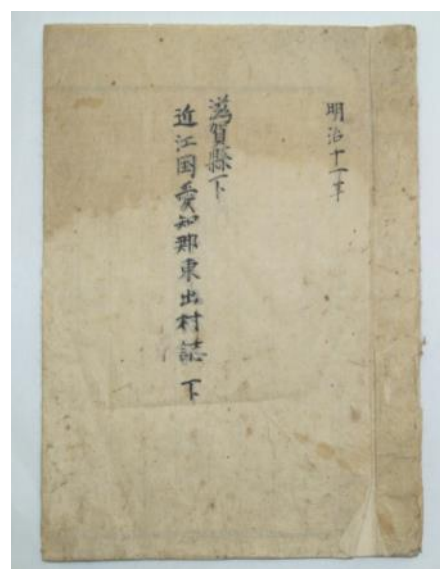 明治十一年
滋賀縣下
近江国愛知郡東出村誌 下